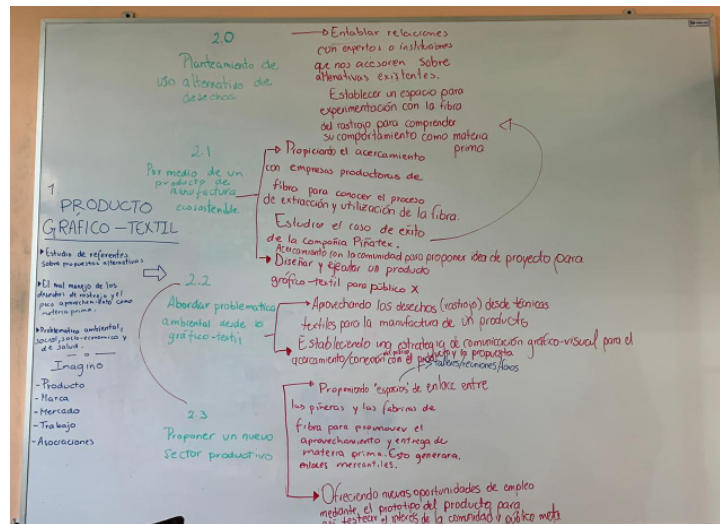 2.0
Planteamiento de
uso alternativo de
desechos.
Entablar relaciones
con expertos o instituciones
que nos accesoren sobre
alternativas existentes.
Establecer un espacio para
experimentación con la fibra
del rastrojo para comprender
su comportamiento como materia
prima
2.1
Por medio de un
producto de
manufactura
ecosostenible.
Propiciando el acercamiento
con empresas productoras de
fibra para conocer el proceso
de extracción y utilización de la fibra.
Estudiar el caso de éxito
de la compañía Piñatex.
Acercamiento con la comunidad para proponer idea de proyecto para
Diseñar y ejecutar un producto
gráfico-textil para público X
1.
PRODUCTO
GRÁFICO-TEXTIL
Estudio de referentes
sobre propuestas alternativas
El mal manejo de los
desechos de rastrojo y el
poco aprovechamiento como
materia prima.
Problemática ambiental,
social, socio-económica y
de salud.
Imagino
-Producto
-Marca
-Mercado
-Trabajo
-Asociaciones
2.2
Abordar problematica
ambiental desde lo
gráfico-textil
Aprovechando los desechos (rastrojo) desde técnicas
textiles para la manufactura de un producto
Estableciendo una estrategia de comunicación gráfico-visual para el
acercamiento/conexión con el producto y la propuesta
talleres/reuniones
2.3
Proponer un nuevo
sector productivo
Propiciando "espacios" de enlace entre
las piñeras y las fabricas de
fibra para promover el
aprovechamiento y entrega de
materia prima. Esto generara,
enlaces mercantiles.
Ofreciendo nuevas oportunidades de empleo
mediante, el prototipo del producto para
testear el interés de la comunidad y público meta